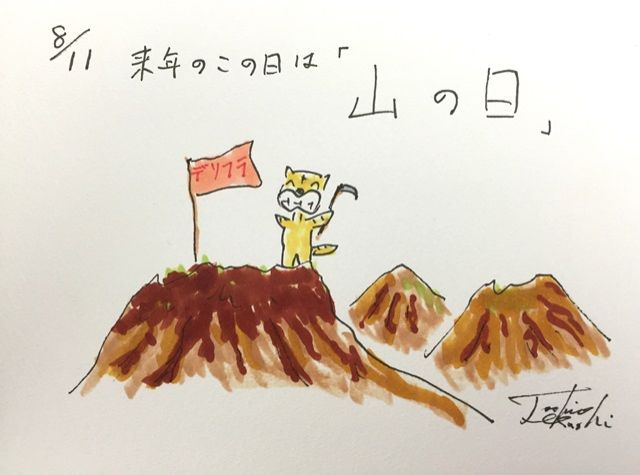 8/11 来年のこの日は「山の日」
デリフラ